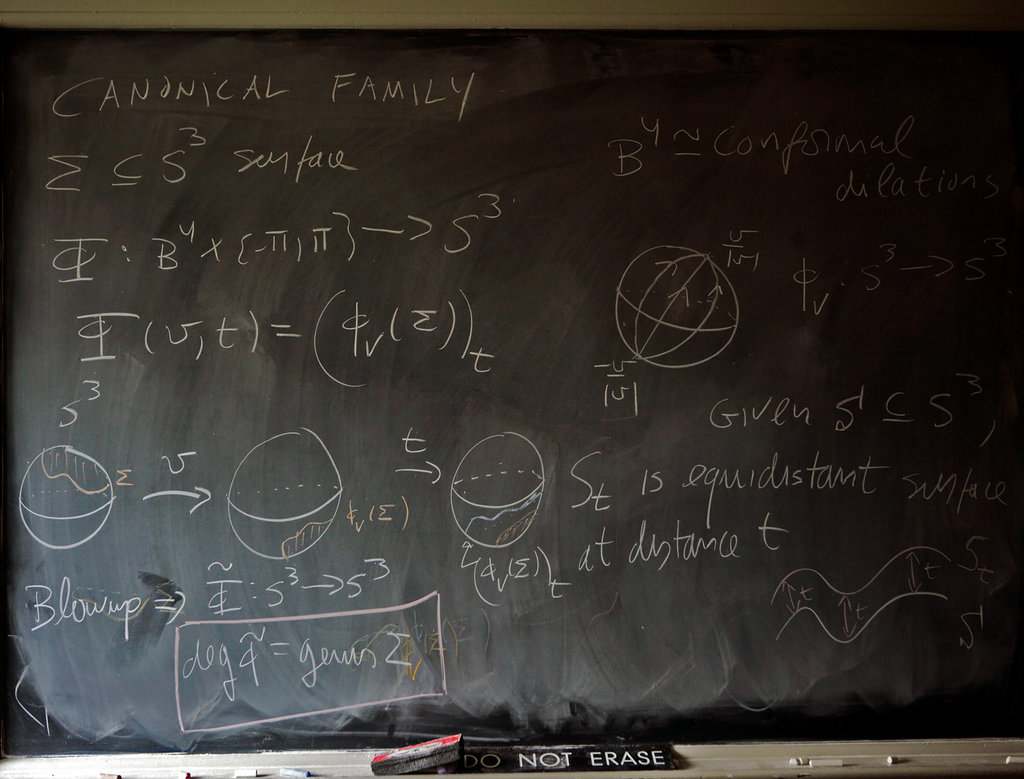 CANONICAL FAMILY
Σ ⊆ S³ surface
Φ : B⁴ × {-π, π} → S³
Φ (v, t) = (ϕᵥ(Σ))ₜ
B⁴ ≃ conformal
dilations
v/|v|
ϕᵥ : S³ → S³
-v/|v|
Given S ⊆ S³,
Sₜ is equidistant surface
at distance t
S³
Σ
v
ϕᵥ(Σ)
t
(ϕᵥ(Σ))ₜ
t t t Sₜ
S
Blowup ⇒ Φ̃ : S³ → S³
deg Φ̃ = genus Σ
DO NOT ERASE